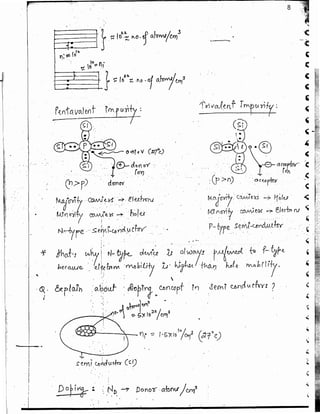 8
≃ 10²² = no. of atoms/cm³
≃ 10¹⁰ = ni
≃ 10²² = no. of atoms/cm³
Pentavalent Impurity :
Trivalent Impurity :
Si
Si
Si P Si
Si Si
Si
donor
ion
acceptor
ion
(n>p)
donor
(p>n)
acceptor
Majority carriers → Electrons
Majority carriers → Holes
Minority carriers → holes
Minority carriers → Electrons
N-type Semi-conductor
P-type Semi-conductor
* That's why N-type device is always preferred to P-type
because electron mobility is higher than hole mobility.
Q. Explain about doping concept in Semi conductors ?
no. of atoms/cm³
= 5×10²²/cm³
ni = 1.5×10¹⁰/cm³ (27°c)
Semi conductor (Si)
Doping : N_D → Donor atoms/cm³